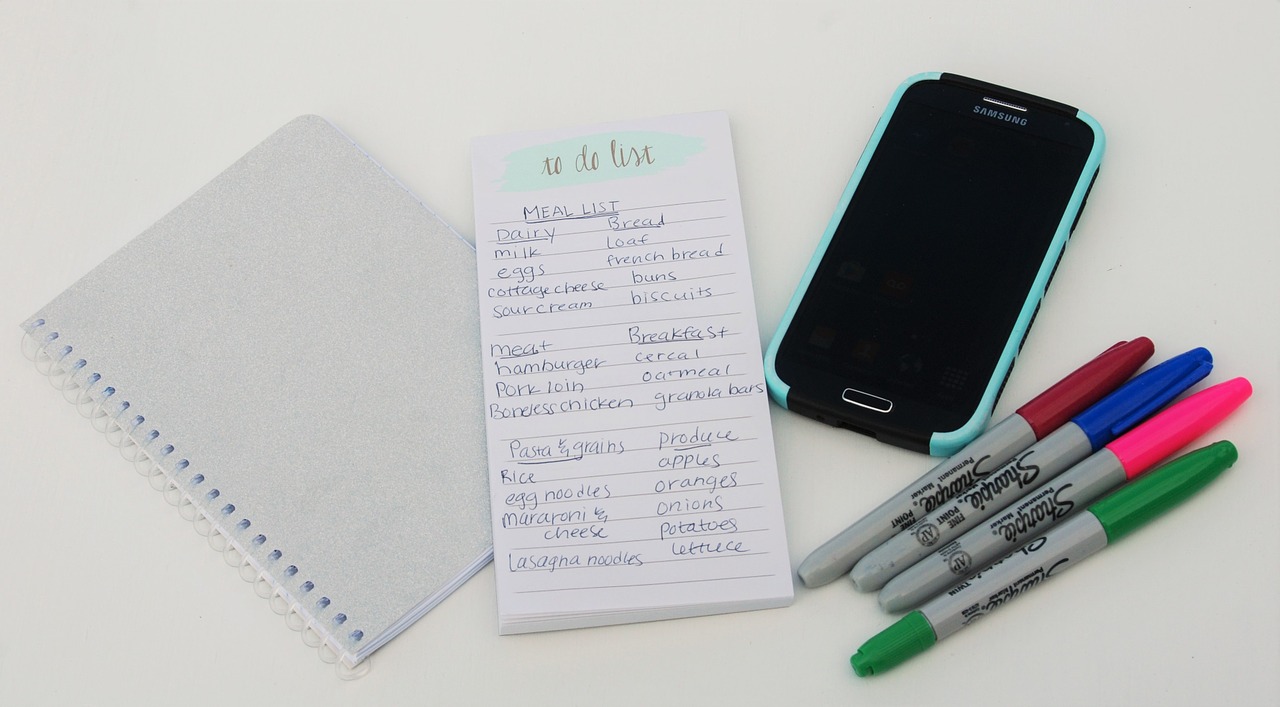 to do list
MEAL LIST
Dairy
milk
eggs
cottage cheese
sour cream
Bread
loaf
french bread
buns
biscuits
meat
hamburger
Pork loin
Boneless chicken
Breakfast
cereal
oatmeal
granola bars
Pasta & grains
Rice
egg noodles
macaroni &
cheese
lasagna noodles
produce
apples
oranges
onions
potatoes
lettuce
SAMSUNG
Sharpie
Permanent Marker
FINE POINT
Sharpie
FINE POINT
AP
Sharpie
Permanent Marker
AP
Sharpie
Permanent Marker
TWIN